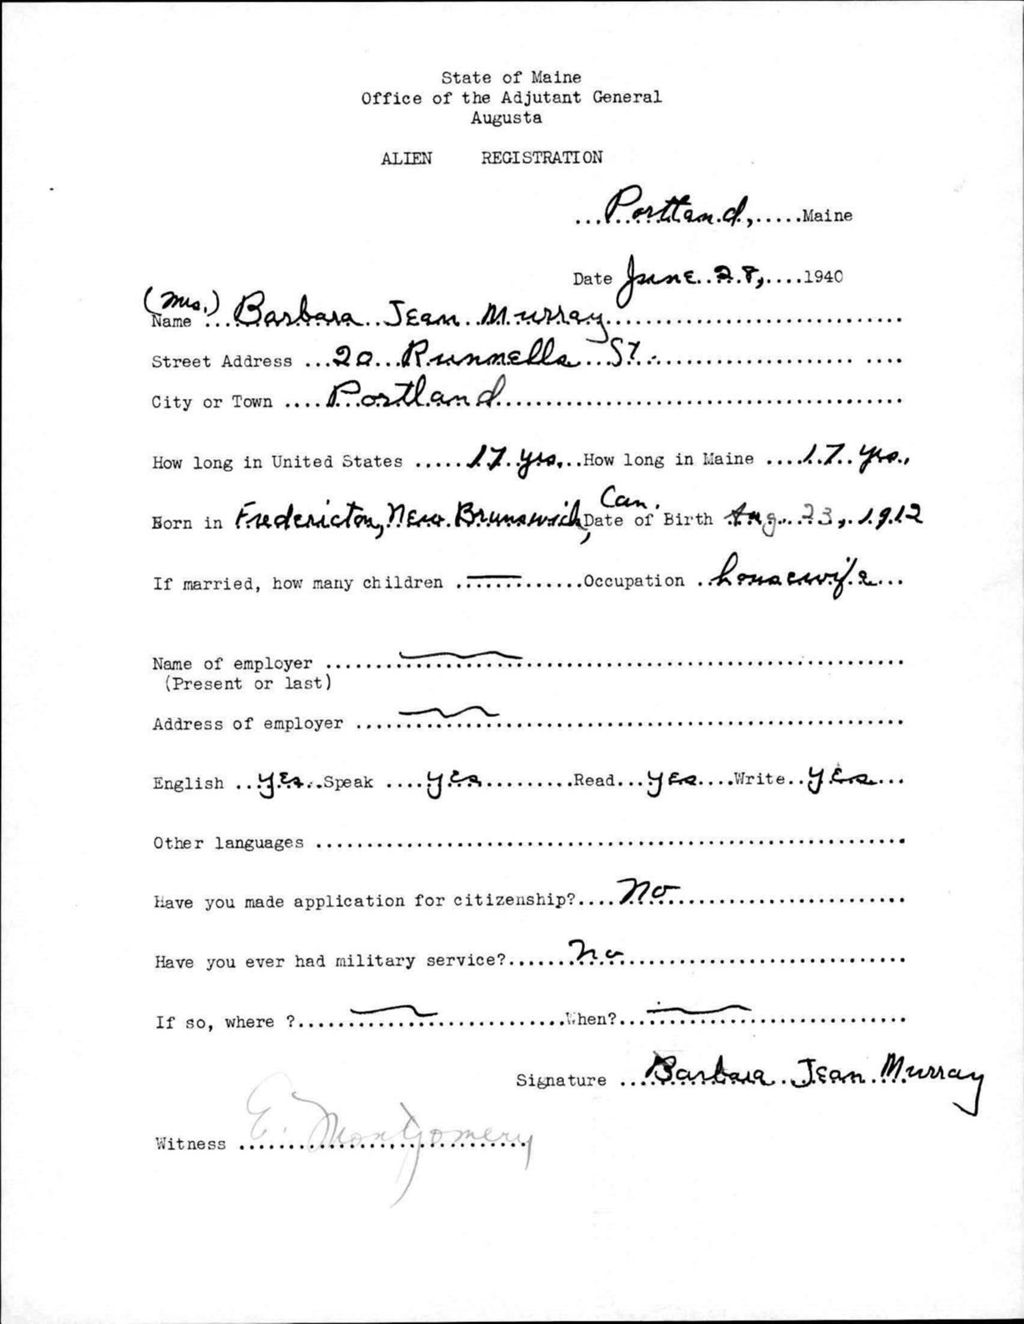 State of Maine
Office of the Adjutant General
Augusta
ALIEN REGISTRATION
...Portland,.....Maine
Date June..28,....1940
(Mrs.)
Name ...Barbara..Jean..Murray..............................
Street Address ...20...Runnells...St..................... ....
City or Town ....Portland.......................................
How long in United States .....17.yrs...How long in Maine ....17..yrs.,
Born in Fredericton, New.Brunswick, Can. Date of Birth Aug...23,.1912
If married, how many children .———......Occupation ..housewife...
Name of employer ..........................................................
(Present or last)
Address of employer .......................................................
English ..yes..Speak ....yes..........Read...yes....Write..yes...
Other languages ...........................................................
Have you made application for citizenship?....No.......................
Have you ever had military service?.......no............................
If so, where ?...........................When?.............................
Signature ....Barbara..Jean..Murray
Witness E. Montgomery